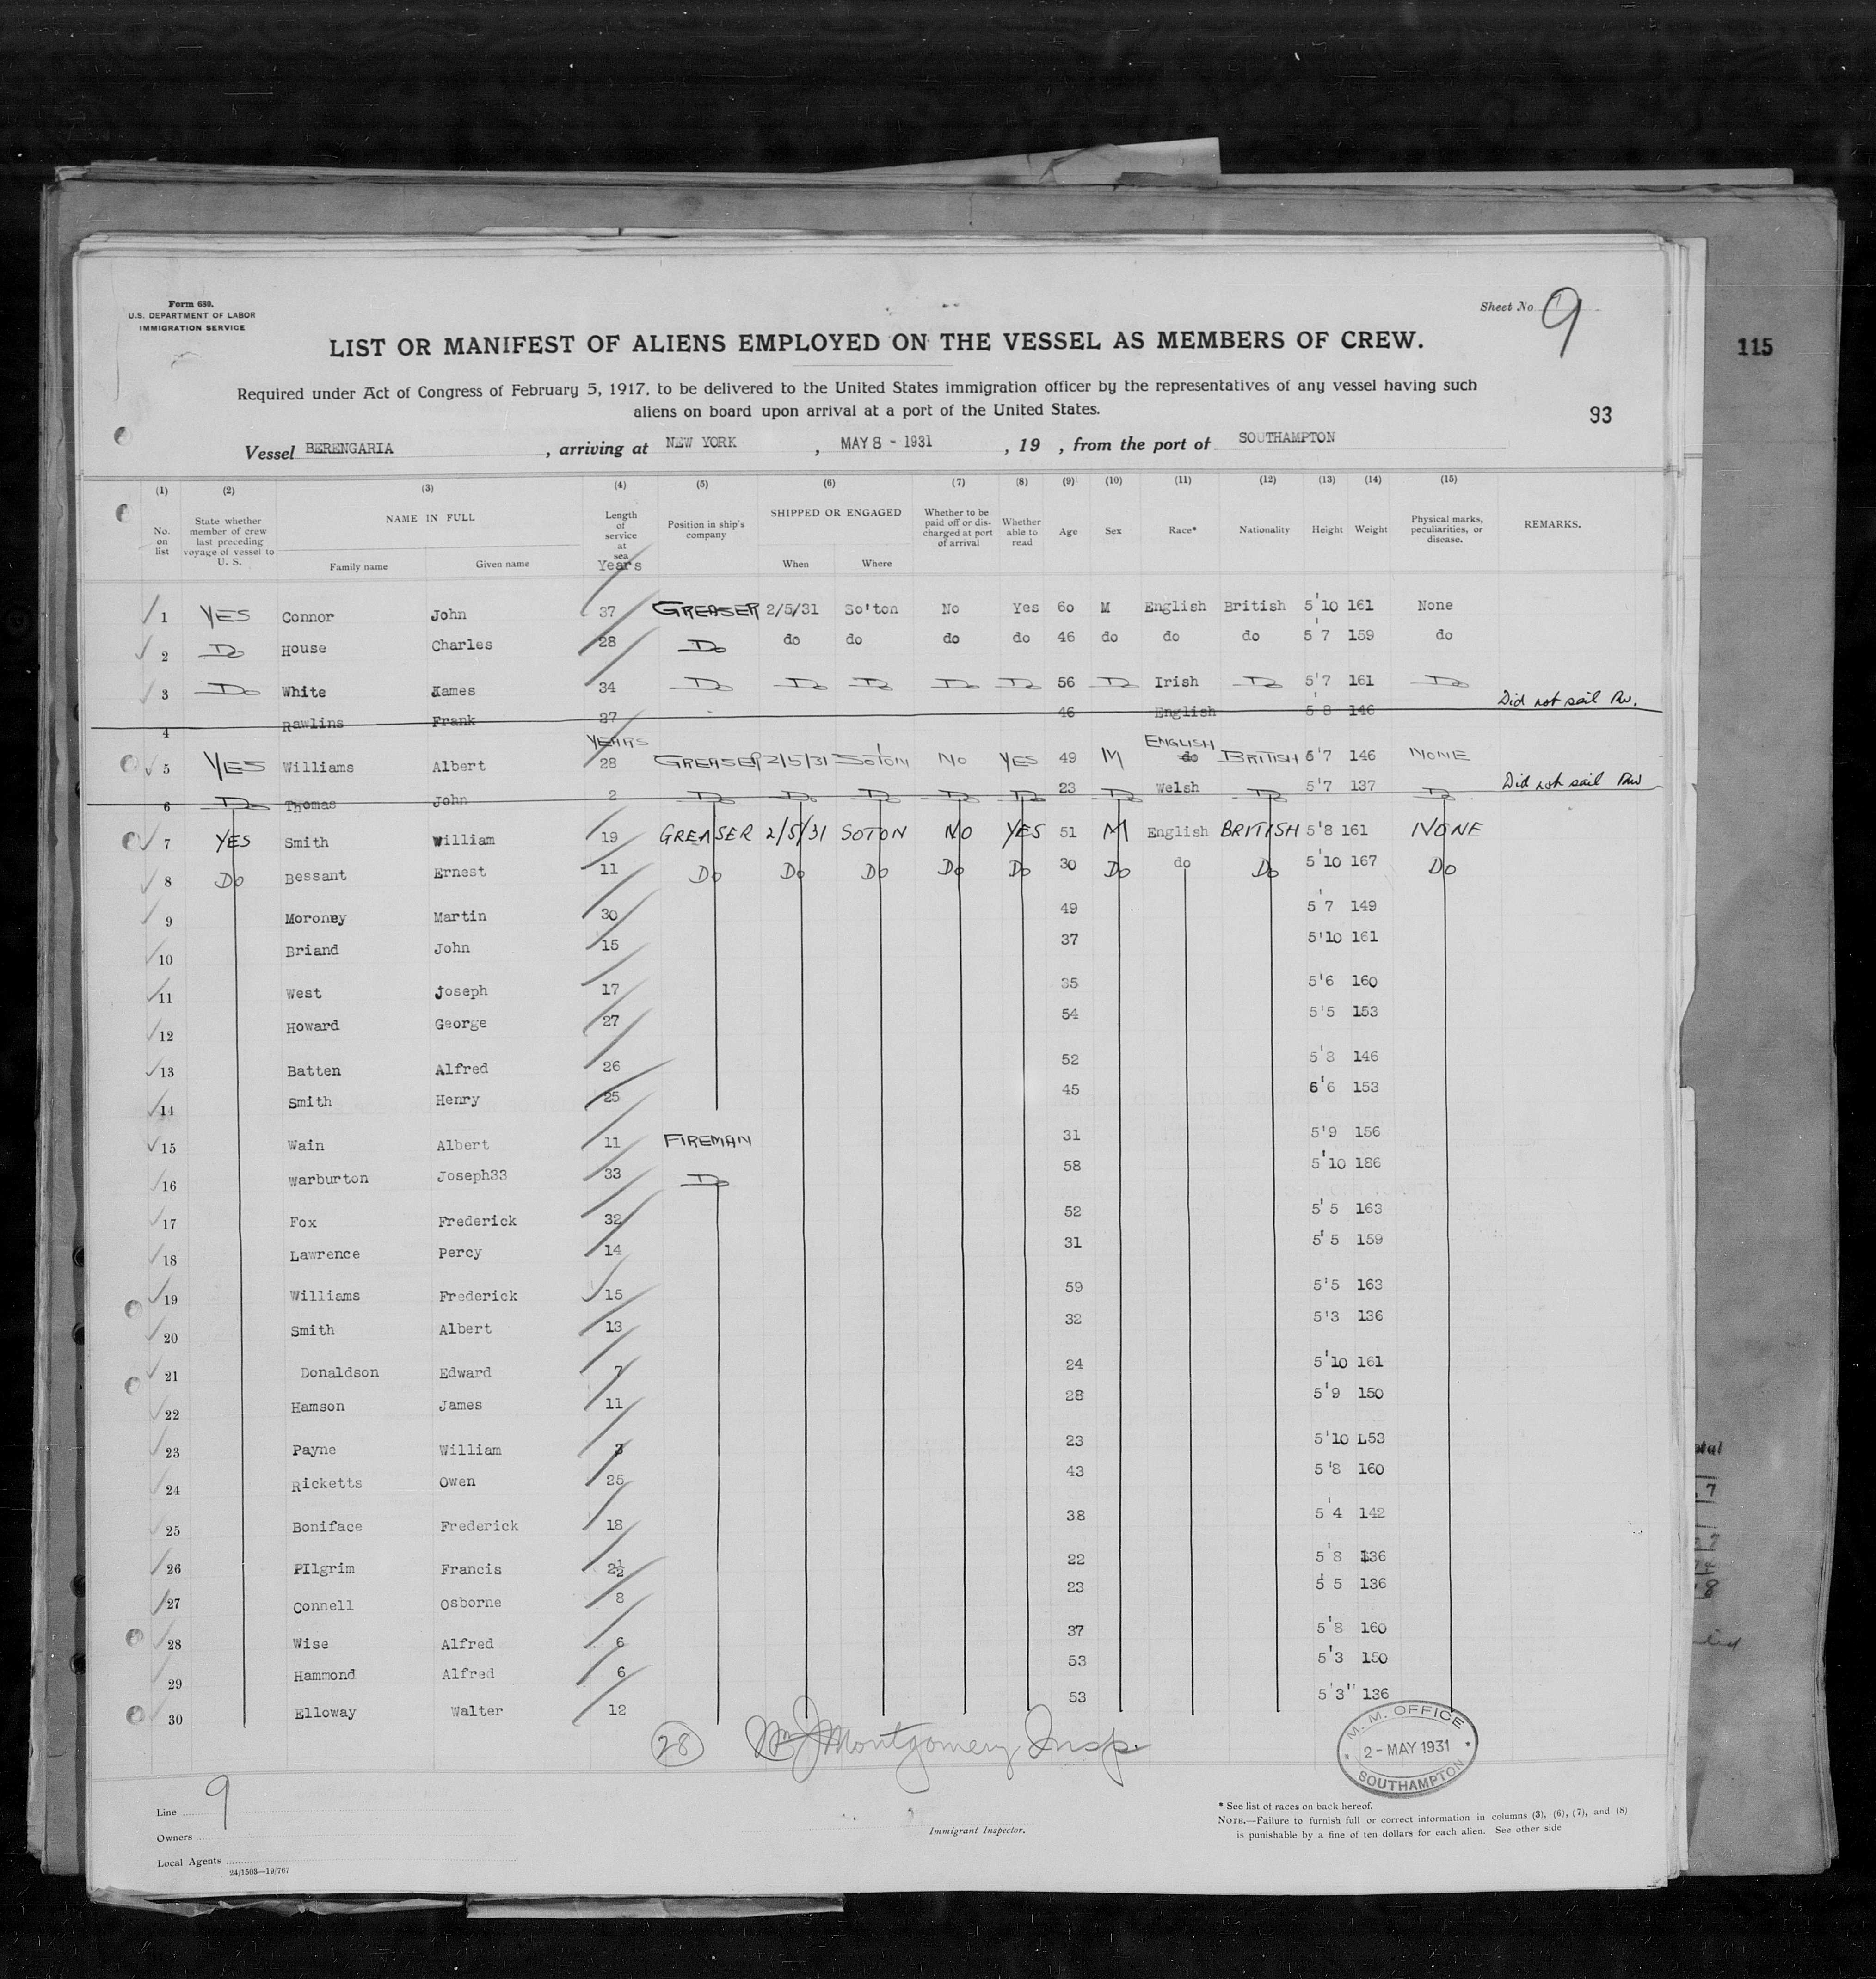 Form 680.
U.S. DEPARTMENT OF LABOR
IMMIGRATION SERVICE
Sheet No 9
LIST OR MANIFEST OF ALIENS EMPLOYED ON THE VESSEL AS MEMBERS OF CREW.
115
Required under Act of Congress of February 5, 1917, to be delivered to the United States immigration officer by the representatives of any vessel having such
aliens on board upon arrival at a port of the United States.
93
Vessel BERENGARIA , arriving at NEW YORK , MAY 8 - 1931 , 19 , from the port of SOUTHAMPTON
(1) (2) (3) (4) (5) (6) (7) (8) (9) (10) (11) (12) (13) (14) (15)
No. on list
State whether member of crew last preceding voyage of vessel to U. S.
NAME IN FULL
Family name Given name
Length of service at sea
Years
Position in ship's company
SHIPPED OR ENGAGED
When Where
Whether to be paid off or discharged at port of arrival
Whether able to read
Age
Sex
Race*
Nationality
Height
Weight
Physical marks, peculiarities, or disease.
REMARKS.
1 YES Connor John 37 GREASER 2/5/31 So'ton No Yes 60 M English British 5'10 161 None
2 Do House Charles 28 Do do do do do 46 do do do 5'7 159 do
3 Do White James 34 Do Do Do Do Do 56 Do Irish Do 5'7 161 Do
4 Rawlins Frank 27 46 English 5'8 146 Did not sail
YEARS ENGLISH
5 YES Williams Albert 28 GREASER 2/5/31 SOTON NO YES 49 M do BRITISH 5'7 146 NONE
6 Do Thomas John 2 Do Do Do Do Do 23 Do Welsh Do 5'7 137 Do Did not sail
7 YES Smith William 19 GREASER 2/5/31 SOTON NO YES 51 M English BRITISH 5'8 161 NONE
8 Do Bessant Ernest 11 Do Do Do Do Do 30 Do do Do 5'10 167 Do
9 Moroney Martin 30 49 5'7 149
10 Briand John 15 37 5'10 161
11 West Joseph 17 35 5'6 160
12 Howard George 27 54 5'5 153
13 Batten Alfred 26 52 5'8 146
14 Smith Henry 25 45 5'6 153
15 Wain Albert 11 FIREMAN 31 5'9 156
16 Warburton Joseph33 33 Do 58 5'10 186
17 Fox Frederick 32 52 5'5 163
18 Lawrence Percy 14 31 5'5 159
19 Williams Frederick 15 59 5'5 163
20 Smith Albert 13 32 5'3 136
21 Donaldson Edward 7 24 5'10 161
22 Hamson James 11 28 5'9 150
23 Payne William 3 23 5'10 L53
24 Ricketts Owen 25 43 5'8 160
25 Boniface Frederick 18 38 5'4 142
26 PIlgrim Francis 2½ 22 5'8 136
27 Connell Osborne 8 23 5'5 136
28 Wise Alfred 6 37 5'8 160
29 Hammond Alfred 6 53 5'3 150
30 Elloway Walter 12 53 5'3" 136
28 Wm J Montgomery Insp.
M. M. OFFICE
2 - MAY 1931
SOUTHAMPTON
9
Line
Owners
Local Agents
24/1503—19/767
Immigrant Inspector.
* See list of races on back hereof.
NOTE.—Failure to furnish full or correct information in columns (3), (6), (7), and (8)
is punishable by a fine of ten dollars for each alien. See other side